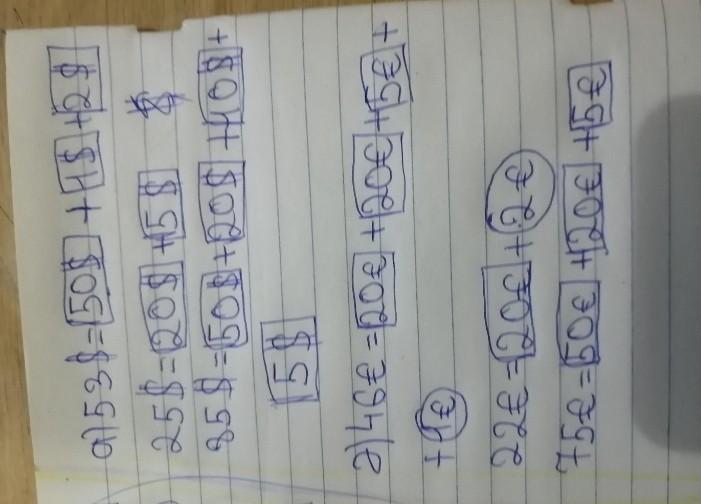 a) 53$ = 50$ + 1$ + 2$
25$ = 20$ + 5$ $
85$ = 50$ + 20$ + 10$ +
5$
2) 46£ = 20£ + 20£ + 5£ +
+ 1£
22£ = 20£ + 2£
75£ = 50£ + 20£ + 5£